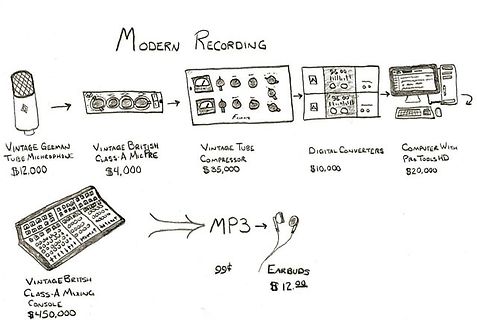 MODERN RECORDING
VINTAGE GERMAN
TUBE MICROPHONE
$12,000
VINTAGE BRITISH
CLASS-A MIC PRE
$4,000
VINTAGE TUBE
COMPRESSOR
$35,000
DIGITAL CONVERTERS
$10,000
COMPUTER WITH
PRO TOOLS HD
$20,000
VINTAGE BRITISH
CLASS-A MIXING
CONSOLE
$450,000
MP3
99¢
EARBUDS
$12.99